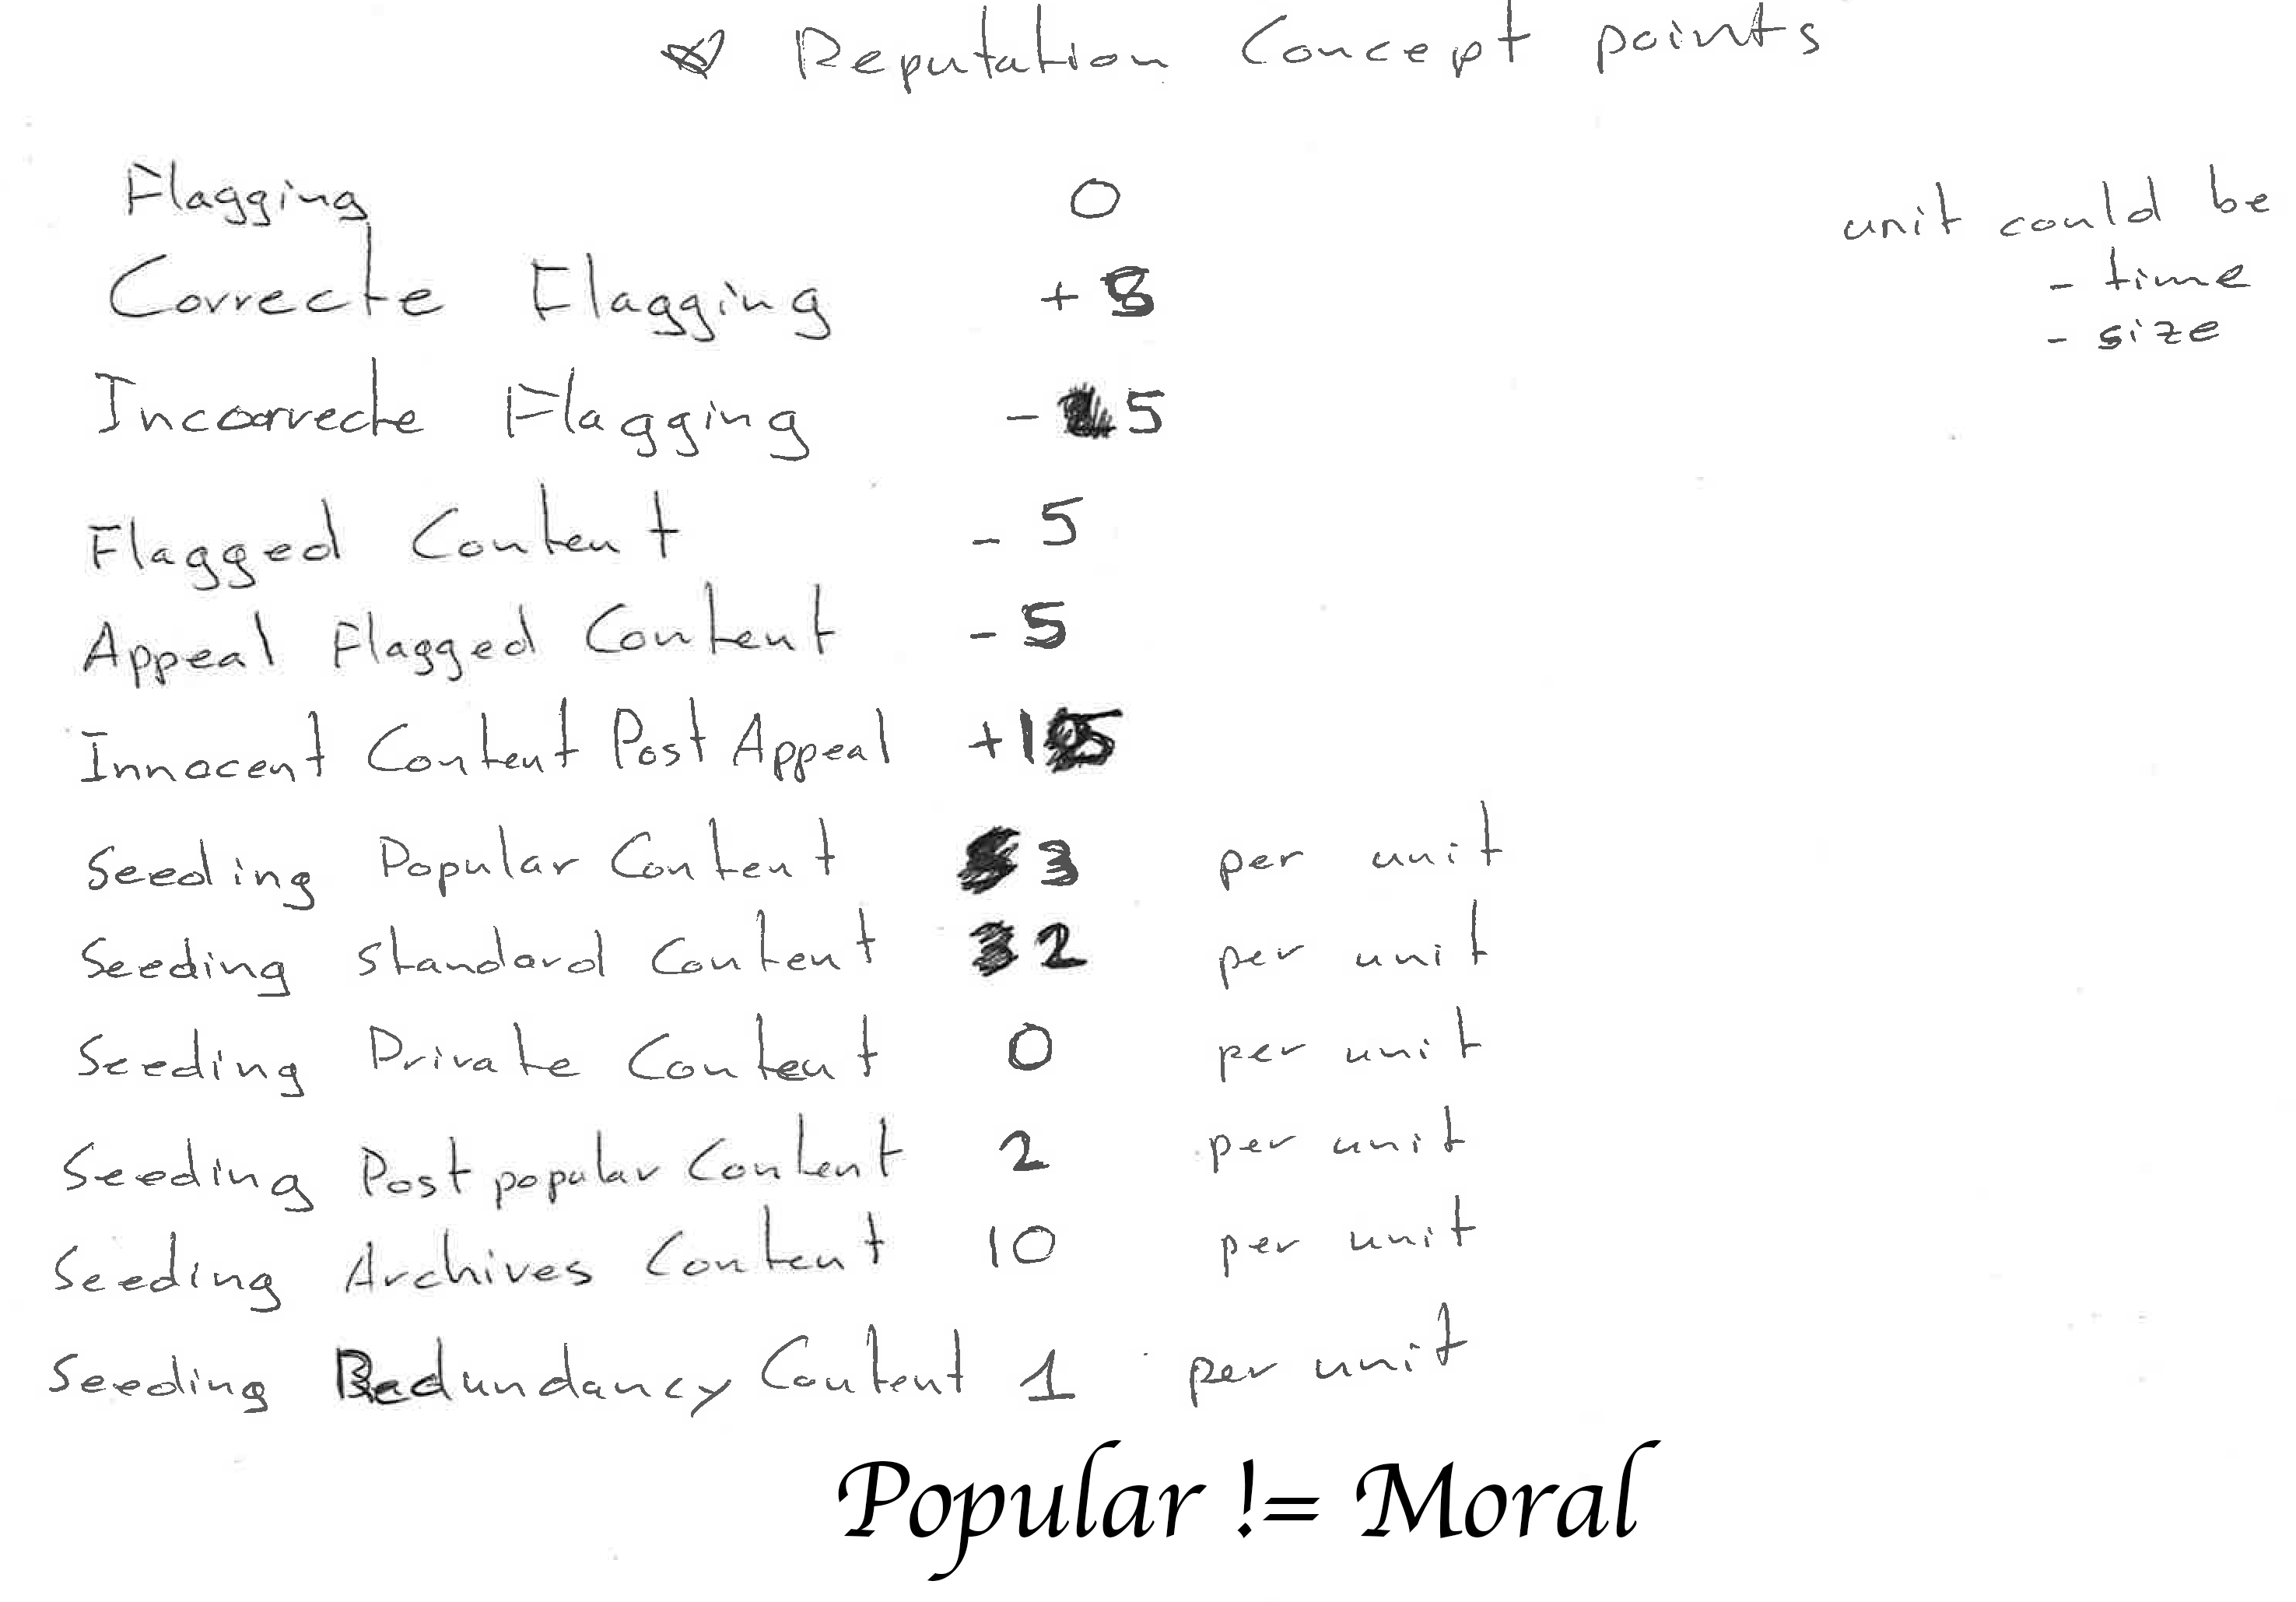 Reputation Concept points
Flagging 0
unit could be
- time
- size
Correcte Flagging +
Incorrecte Flagging - 5
Flagged Content - 5
Appeal Flagged Content - 5
Innocent Content Post Appeal +15
Seeding Popular Content 3 per unit
Seeding standard Content 2 per unit
Seeding Private Content 0 per unit
Seeding Post popular Content 2 per unit
Seeding Archives Content 10 per unit
Seeding Redundancy Content 1 per unit
Popular != Moral